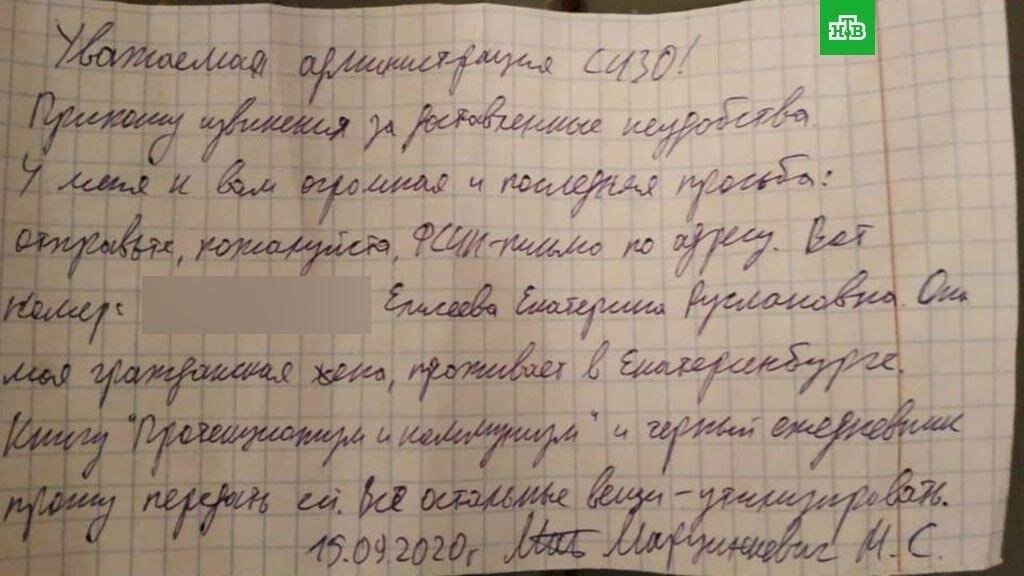 НТВ
Уважаемая администрация СИЗО!
Приношу извинения за доставленные неудобства.
У меня к вам огромная и последняя просьба:
отправьте, пожалуйста, ФСИН-письмо по адресу. Вот
номер: Елисеева Екатерина Руслановна. Она
моя гражданская жена, проживает в Екатеринбурге.
Книгу "Протекционизм и коммунизм" и черный ежедневник
прошу передать ей. Всё остальные вещи – утилизировать.
15.09.2020г Марцинкевич М.С.